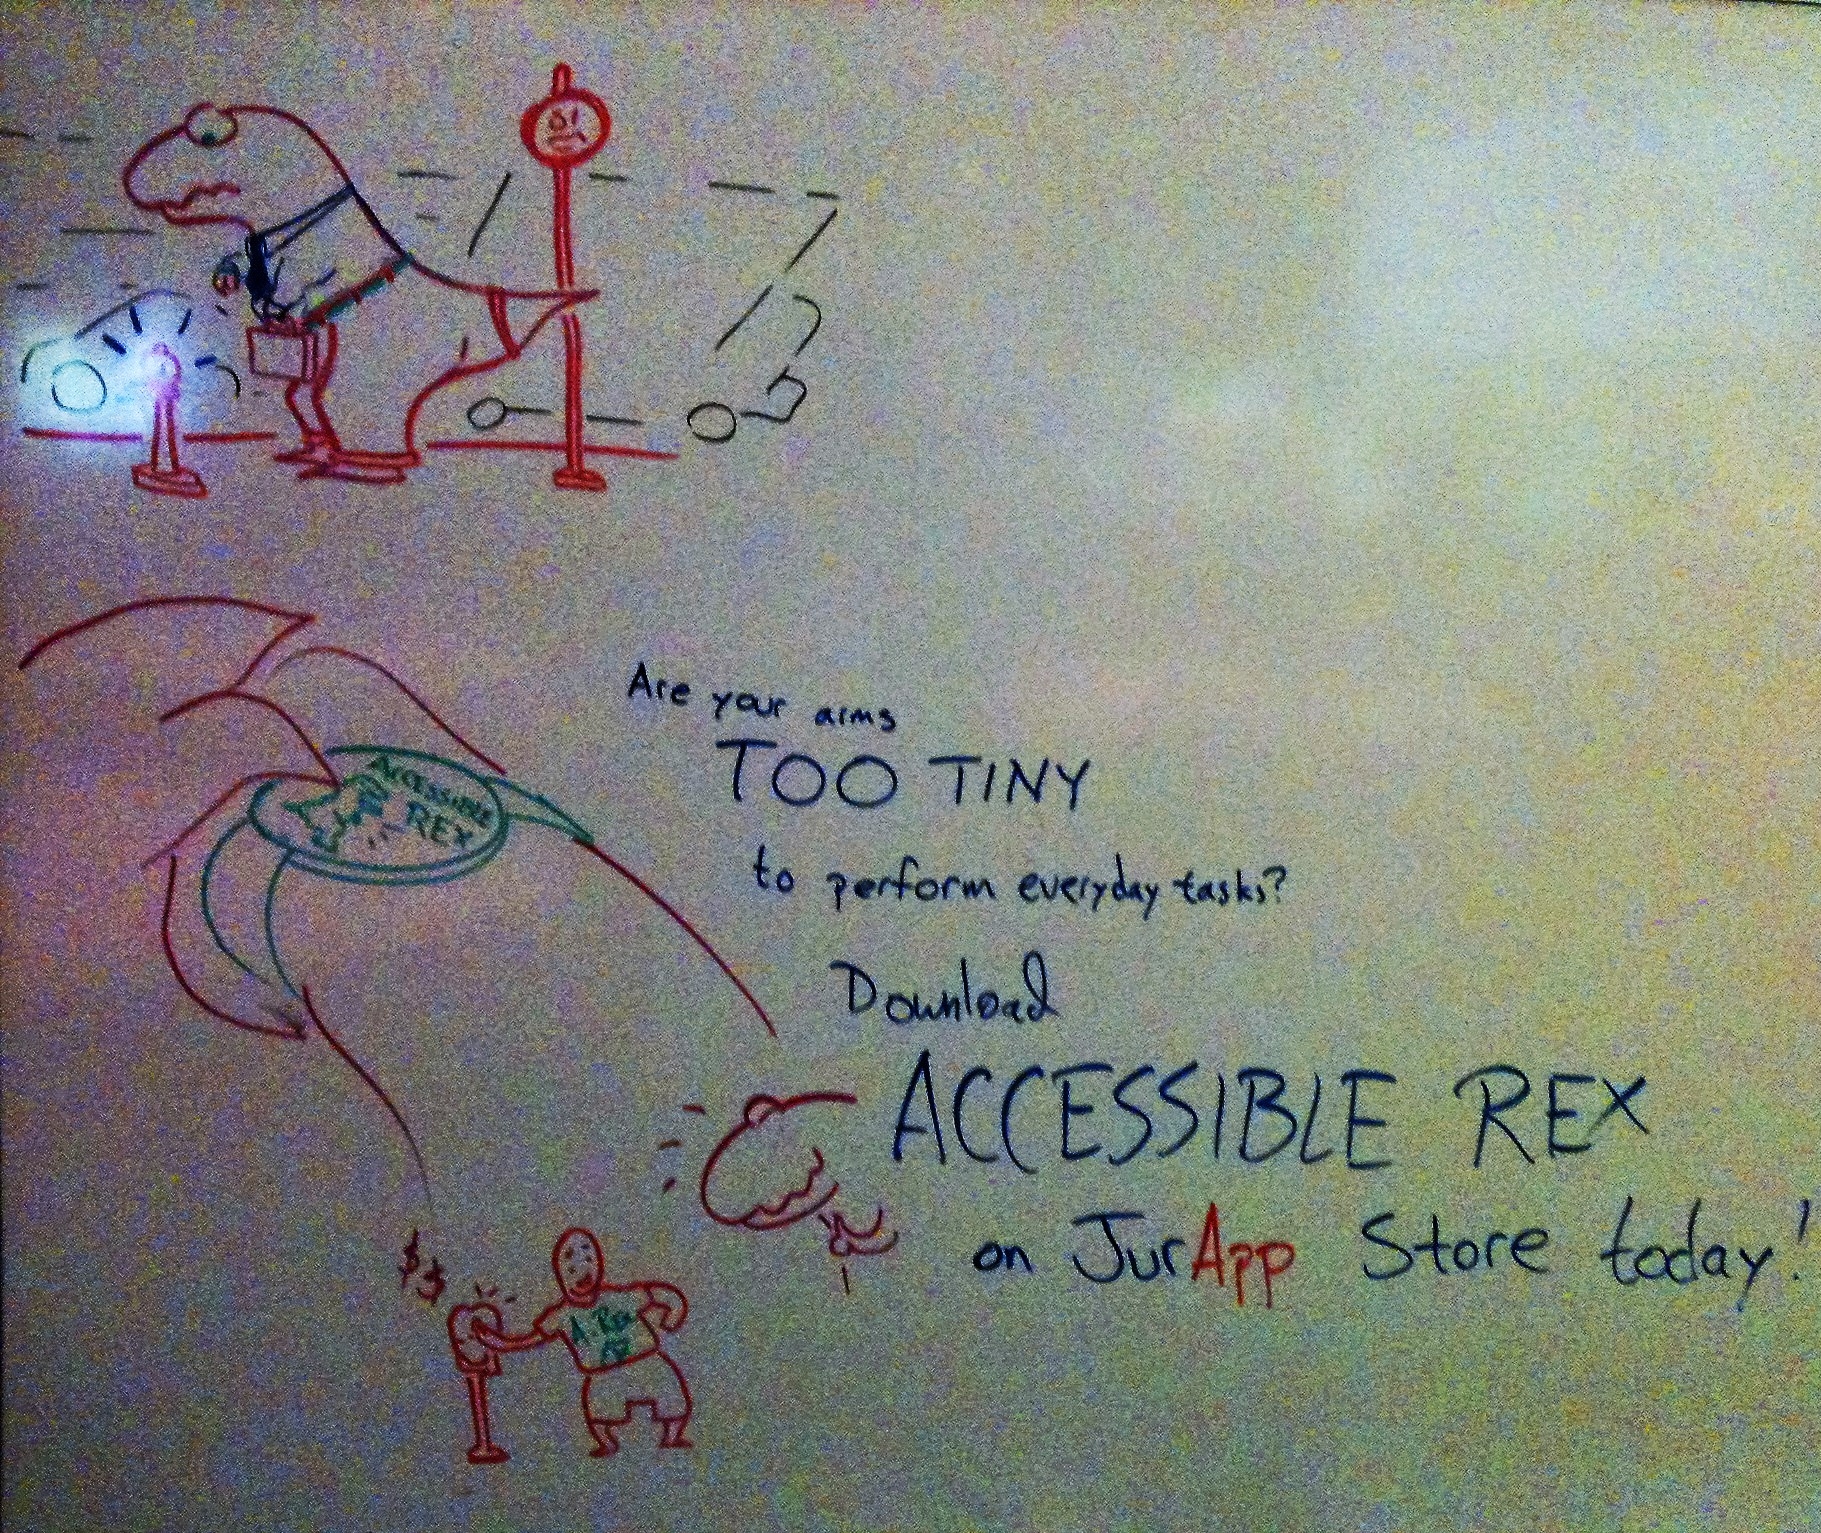 ACCESSIBLE
REX
Are your arms
TOO TINY
to perform everyday tasks?
Download
ACCESSIBLE REX
on JurApp Store today!
$$
A. Rex